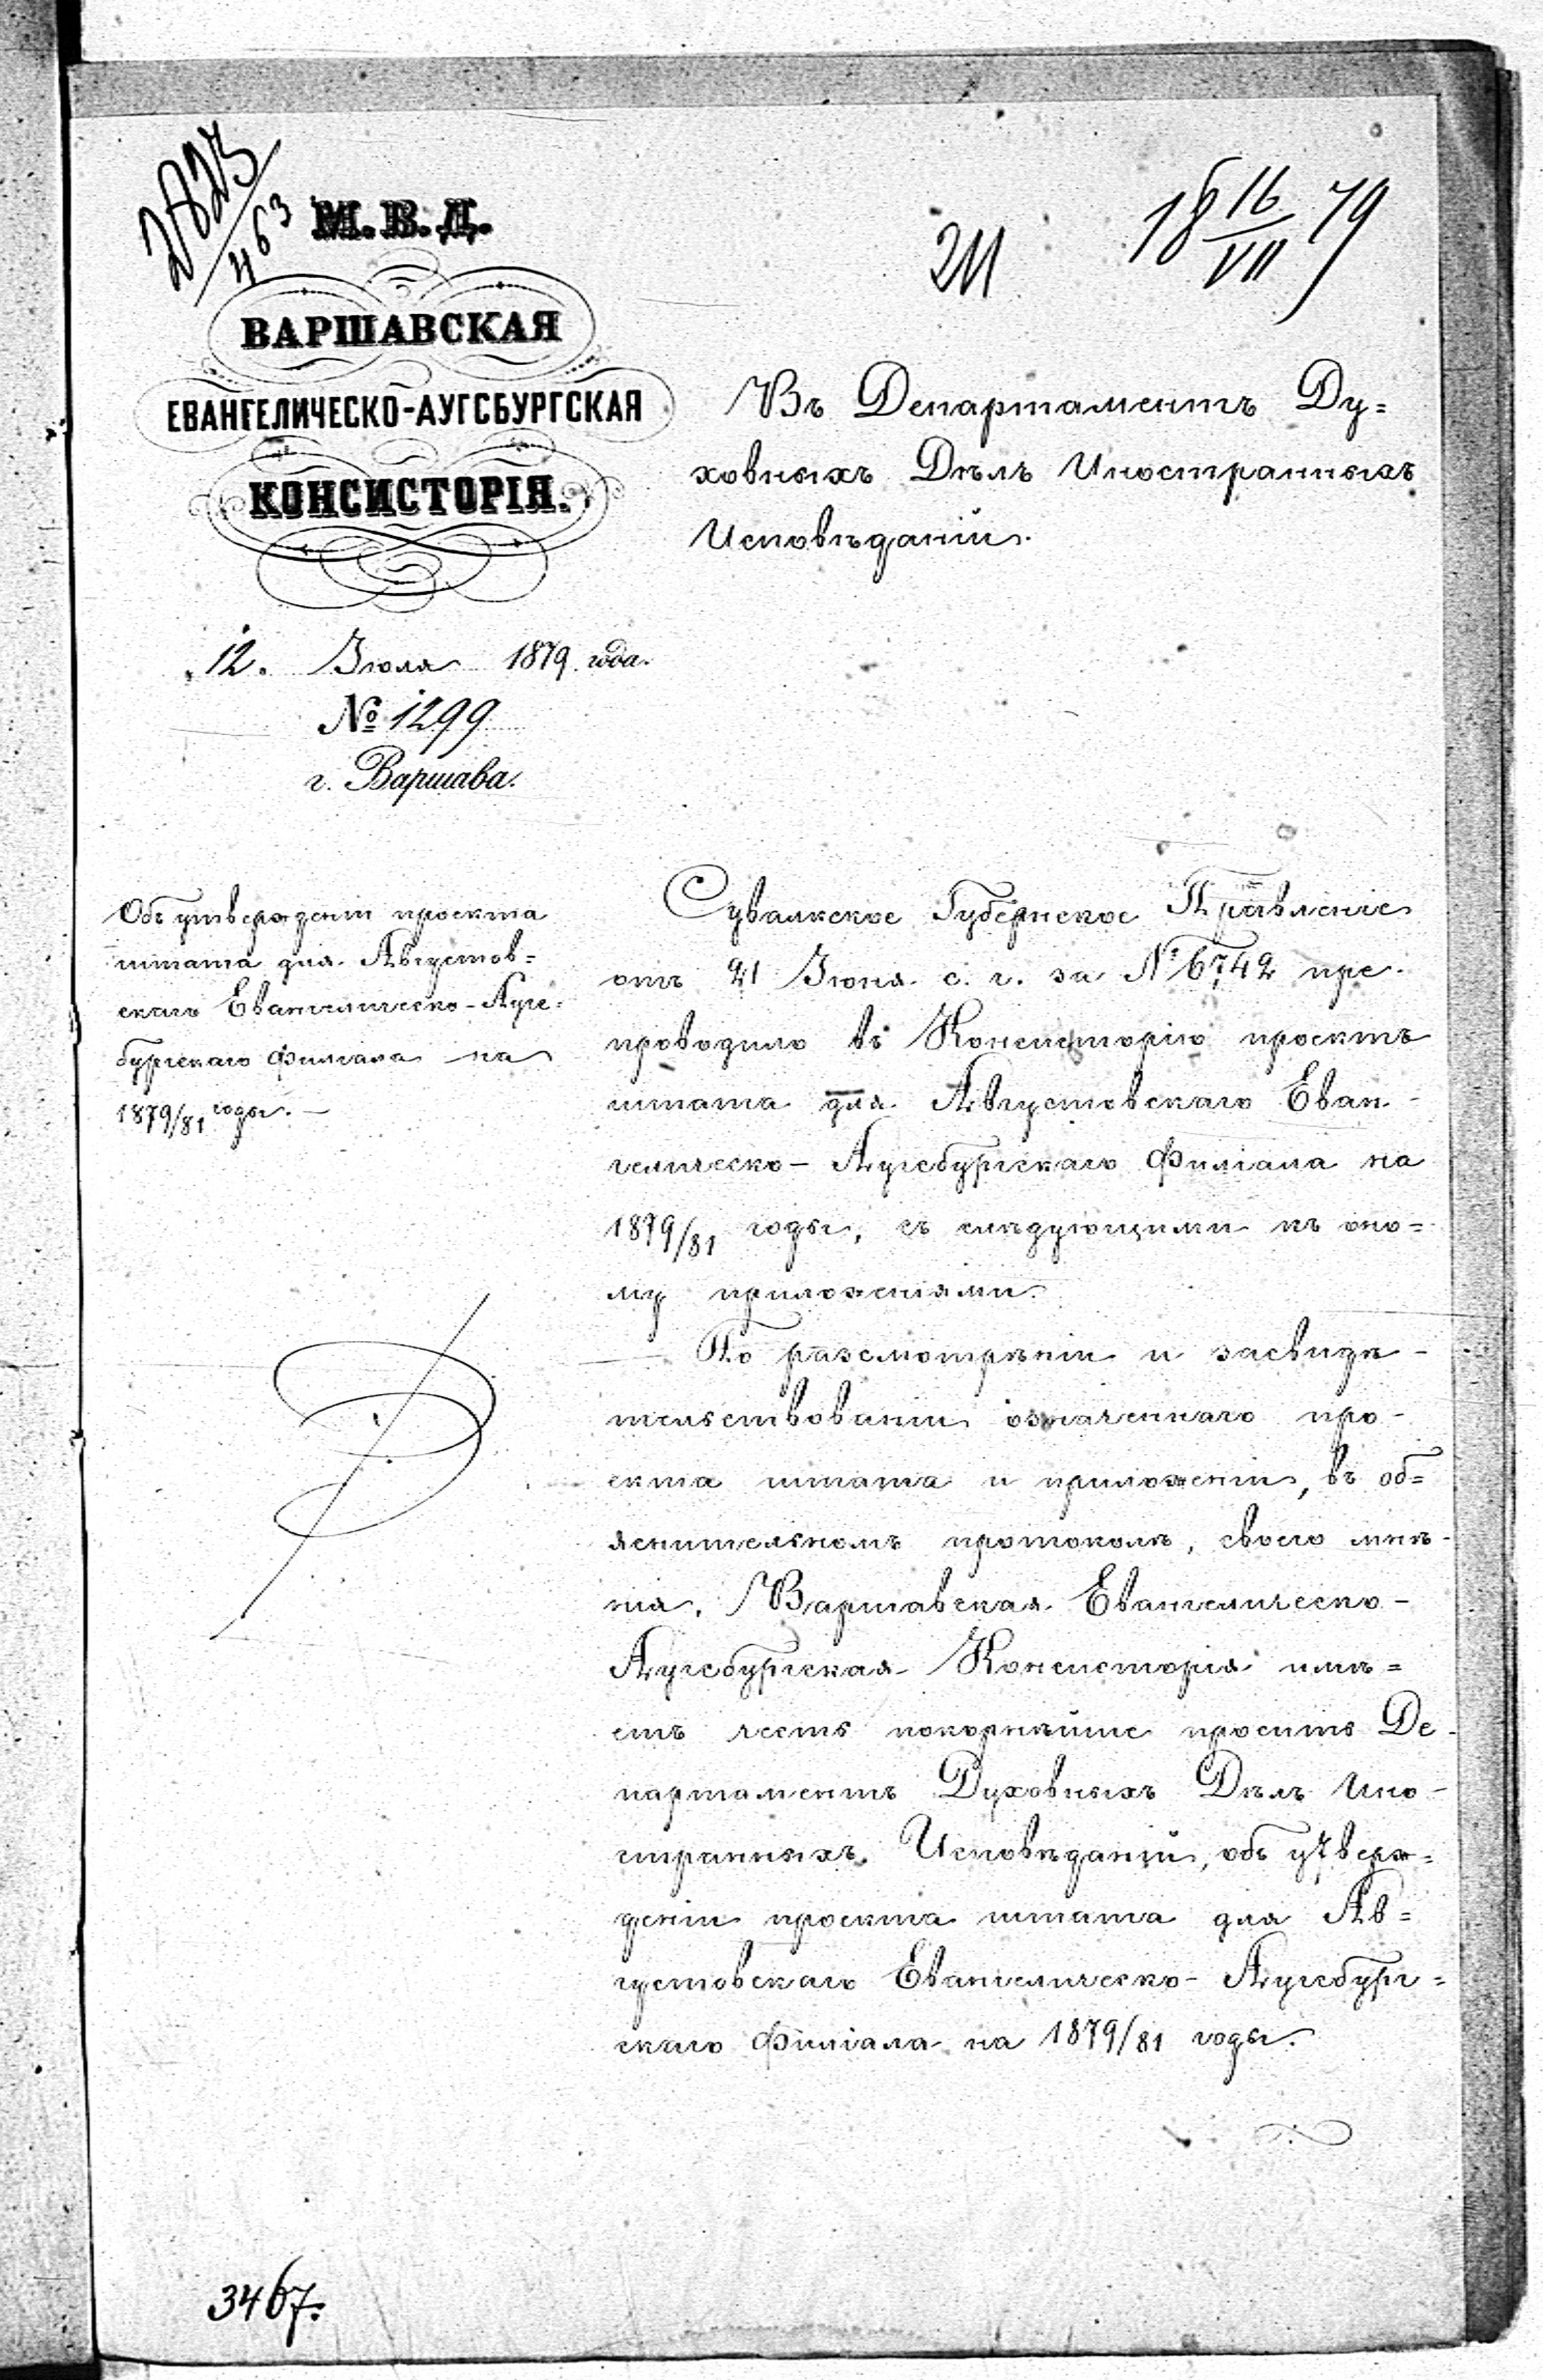 18 16/VII 79
211
М. В. Д.
ВАРШАВСКАЯ
ЕВАНГЕЛИЧЕСКО-АУГСБУРГСКАЯ
КОНСИСТОРІЯ.
12. Іюля 1879 года.
№ 1299
г. Варшава.
Въ Департаментъ Ду=
ховныхъ Дѣлъ Иностранныхъ
Исповѣданій.
Объ утвержденіи проекта
штата для Августов=
скаго Евангелическо-Аугс-
бургскаго Филіала на
1879/81 годы.—
Сувалкское Губернское Правленіе
отъ 21 Іюня с. г. за № 6742 пре-
проводило въ Консисторію проектъ
штата для Августовскаго Еван-
гелическо-Аугсбургскаго Филіала на
1879/81 годы, съ слѣдующими къ оно=
му приложеніями.
По разсмотрѣніи и засвидѣ-
тельствованіи означеннаго про-
екта штата и приложеній, въ об=
яснительномъ протоколѣ, своего мнѣ-
нія, Варшавская Евангелическо-
Аугсбургская Консисторія имѣ=
етъ честь покорнѣйше просить Де-
партаментъ Духовныхъ Дѣлъ Ино-
странныхъ Исповѣданій, объ утверж=
деніи проекта штата для Ав=
густовскаго Евангелическо-Аугсбург=
скаго Филіала на 1879/81 годы.
3467.